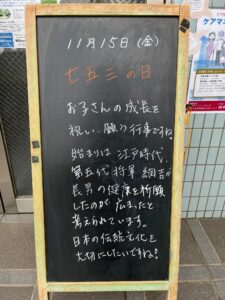 11月15日(金)
七五三の日
お子さんの成長を
祝い、願う行事ですね。
始まりは江戸時代、
第五代将軍 綱吉が
長男の健康を祈願
したのが広まったと
考えられています。
日本の伝統文化を
大切にしたいですね!
ケアマネ